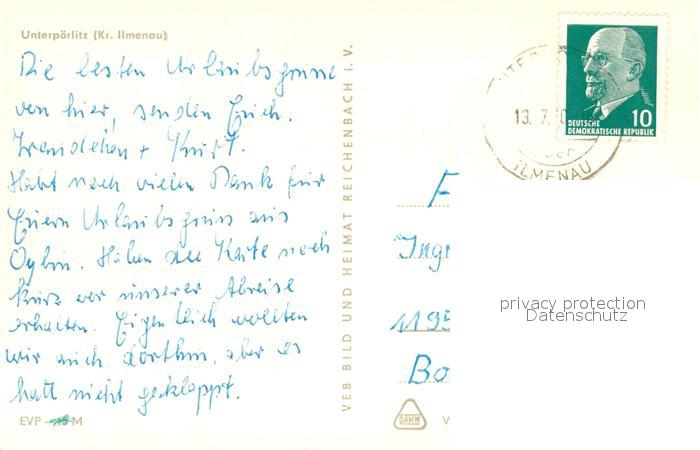 Unterpörlitz (Kr. Ilmenau)
Die besten Urlaubsgrüsse
von hier, senden Euch.
+ Kurt.
Habt noch vielen Dank für
Euern Urlaubsgruss aus
Oybin. Haben die Karte noch
kurz vor unserer Abreise
erhalten. Eigentlich wollten
wir auch dorthin, aber es
hatt nicht geklappt.
EVP M
VEB BILD UND HEIMAT REICHENBACH I. V.
13. 7.
ILMENAU
10
DEUTSCHE
DEMOKRATISCHE REPUBLIK
F
Ingr
1195
Bo
V
privacy protection
Datenschutz